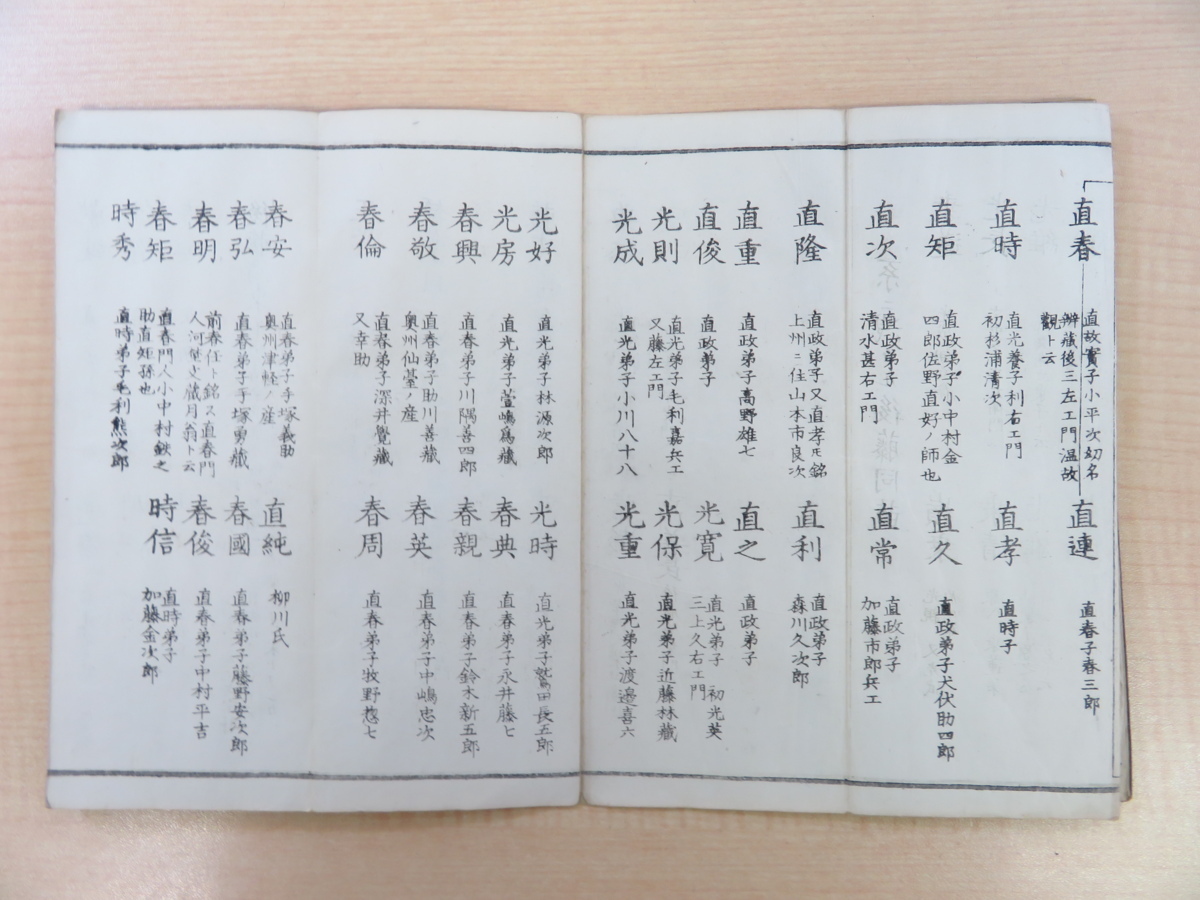 直春
直故實子小平次幼名
辨藏後三左エ門温故
觀ト云
直連
直春子春三郎
直時
直光養子利右エ門
初杉浦清次
直孝
直時子
直矩
直政弟子小中村金
四郎佐野直好ノ師也
直久
直政弟子犬伏助四郎
直次
直政弟子
清水甚右エ門
直常
直政弟子
加藤市郎兵エ
直隆
直政弟子又直孝トモ銘
上州ニ住山本市良次
直利
直政弟子
森川久次郎
直重
直政弟子高野雄七
直之
直政弟子
直俊
直政弟子
光寛
直光弟子 初光英
三上久右エ門
光則
直光弟子毛利嘉兵エ
又藤左エ門
光保
直光弟子近藤林藏
光成
直光弟子小川八十八
光重
直光弟子渡邉喜六
光好
直光弟子林源次郎
光時
直光弟子鷲田長五郎
光房
直光弟子萱嶋爲藏
春典
直春弟子永井藤七
春興
直春弟子川隅善四郎
春親
直春弟子鈴木新五郎
春敬
直春弟子助川善藏
奥州仙䑓ノ産
春英
直春弟子中嶋忠次
春倫
直春弟子深井覺藏
又幸助
春周
直春弟子牧野惣七
春安
直春弟子手塚義助
奥州津軽ノ産
直純
柳川氏
春弘
直春弟子手塚勇藏
春國
直春弟子藤野安次郎
春明
前春任ト銘ス直春門
人河埜 藏月翁ト云
春俊
直春弟子中村平吉
春矩
直春門人小中村鉄之
助直矩孫也
時信
直時弟子
加藤金次郎
時秀
直時弟子毛利熊次郎